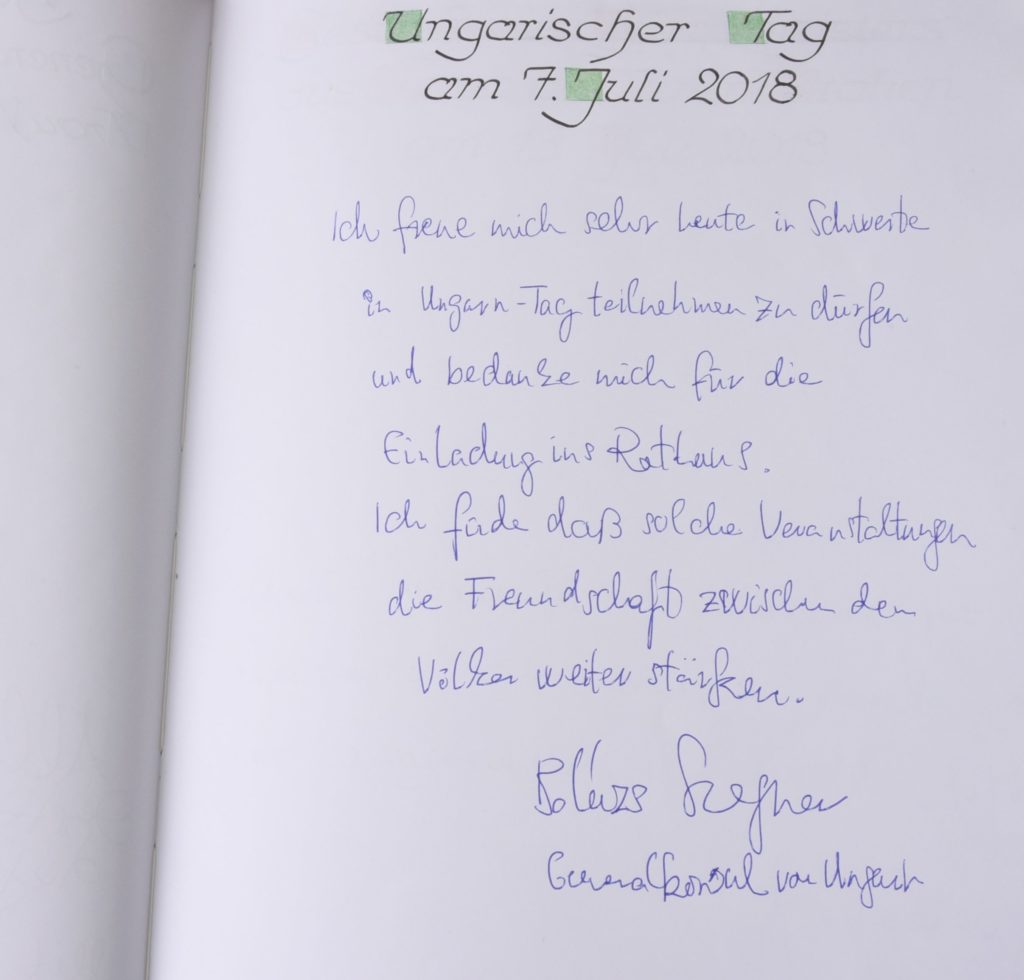 Ungarischer Tag
am 7. Juli 2018
Ich freue mich sehr heute in Schwerte
in Ungarn-Tag teilnehmen zu dürfen
und bedanke mich für die
Einladung ins Rathaus.
Ich finde daß solche Veranstaltungen
die Freundschaft zwischen den
Völker weiter stärken.
Balázs Szegner
Generalkonsul von Ungarn